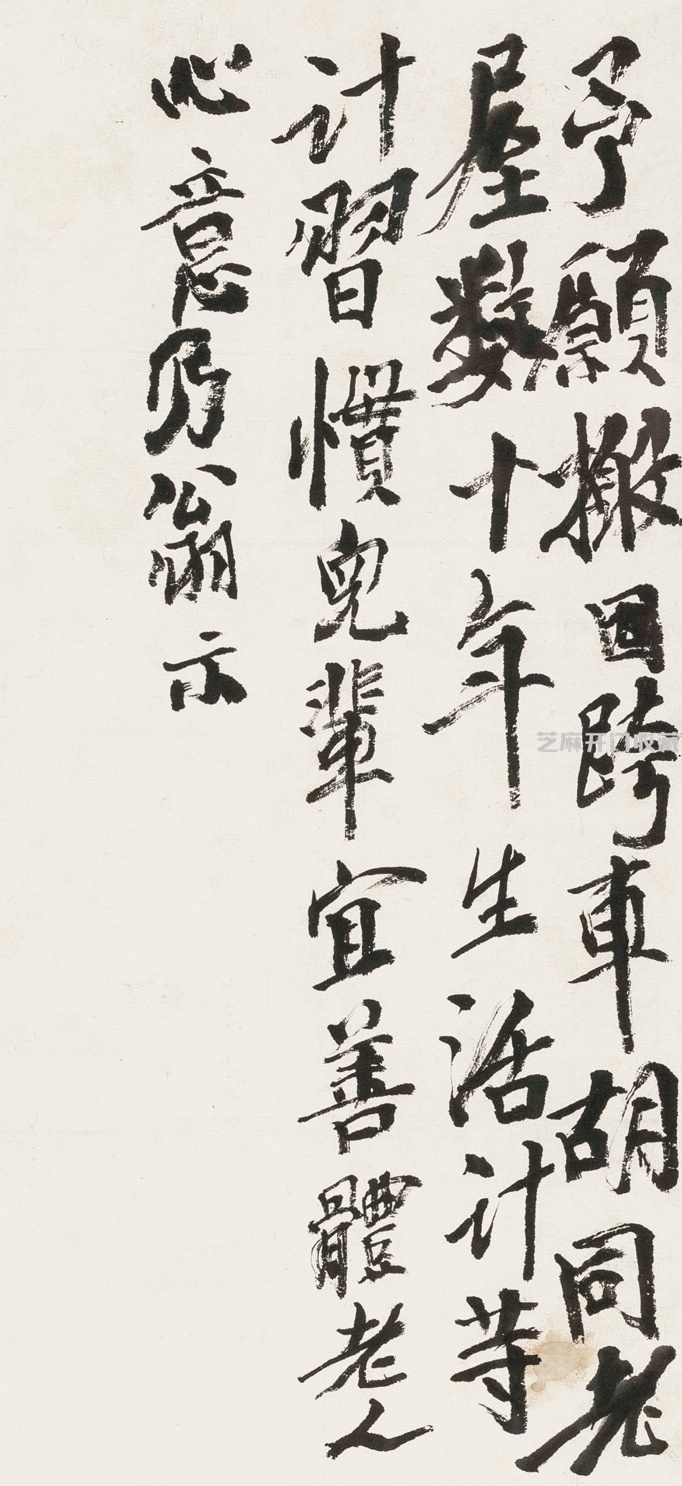 予願搬回跨車胡同老
屋數十年生活計等
计習慣兒輩宜善體老人
心意乃翁示
芝麻开门收藏